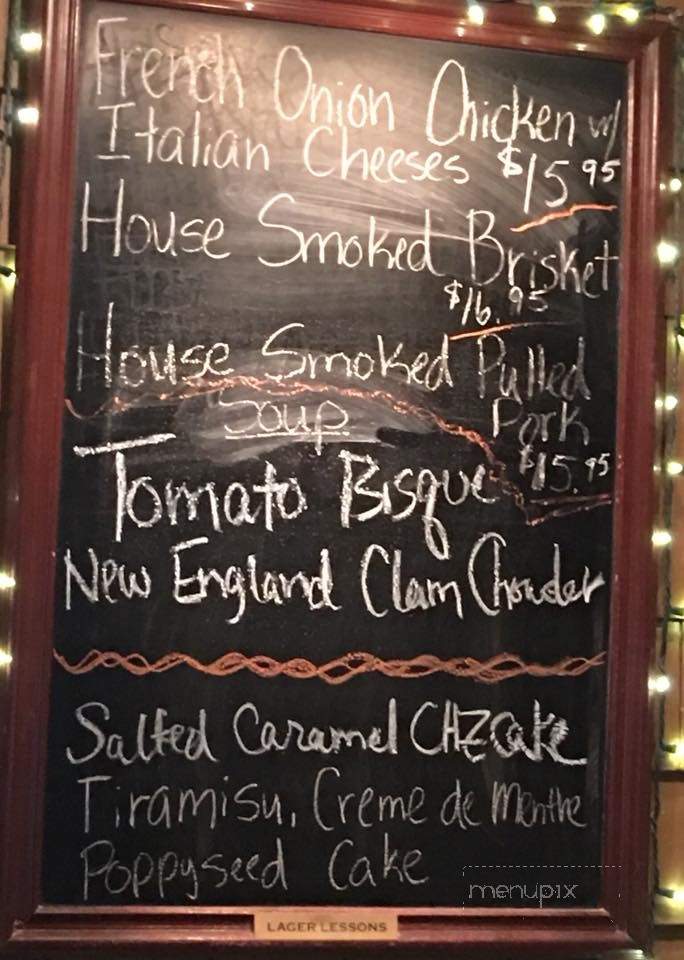 French Onion Chicken w/
Italian Cheeses $15.95
House Smoked Brisket
$16.95
House Smoked Pulled
Pork
$15.95
Soup
Tomato Bisque
New England Clam Chowder
Salted Caramel CHZcake
Tiramisu, Creme de Menthe
Poppyseed Cake
menupix
LAGER LESSONS